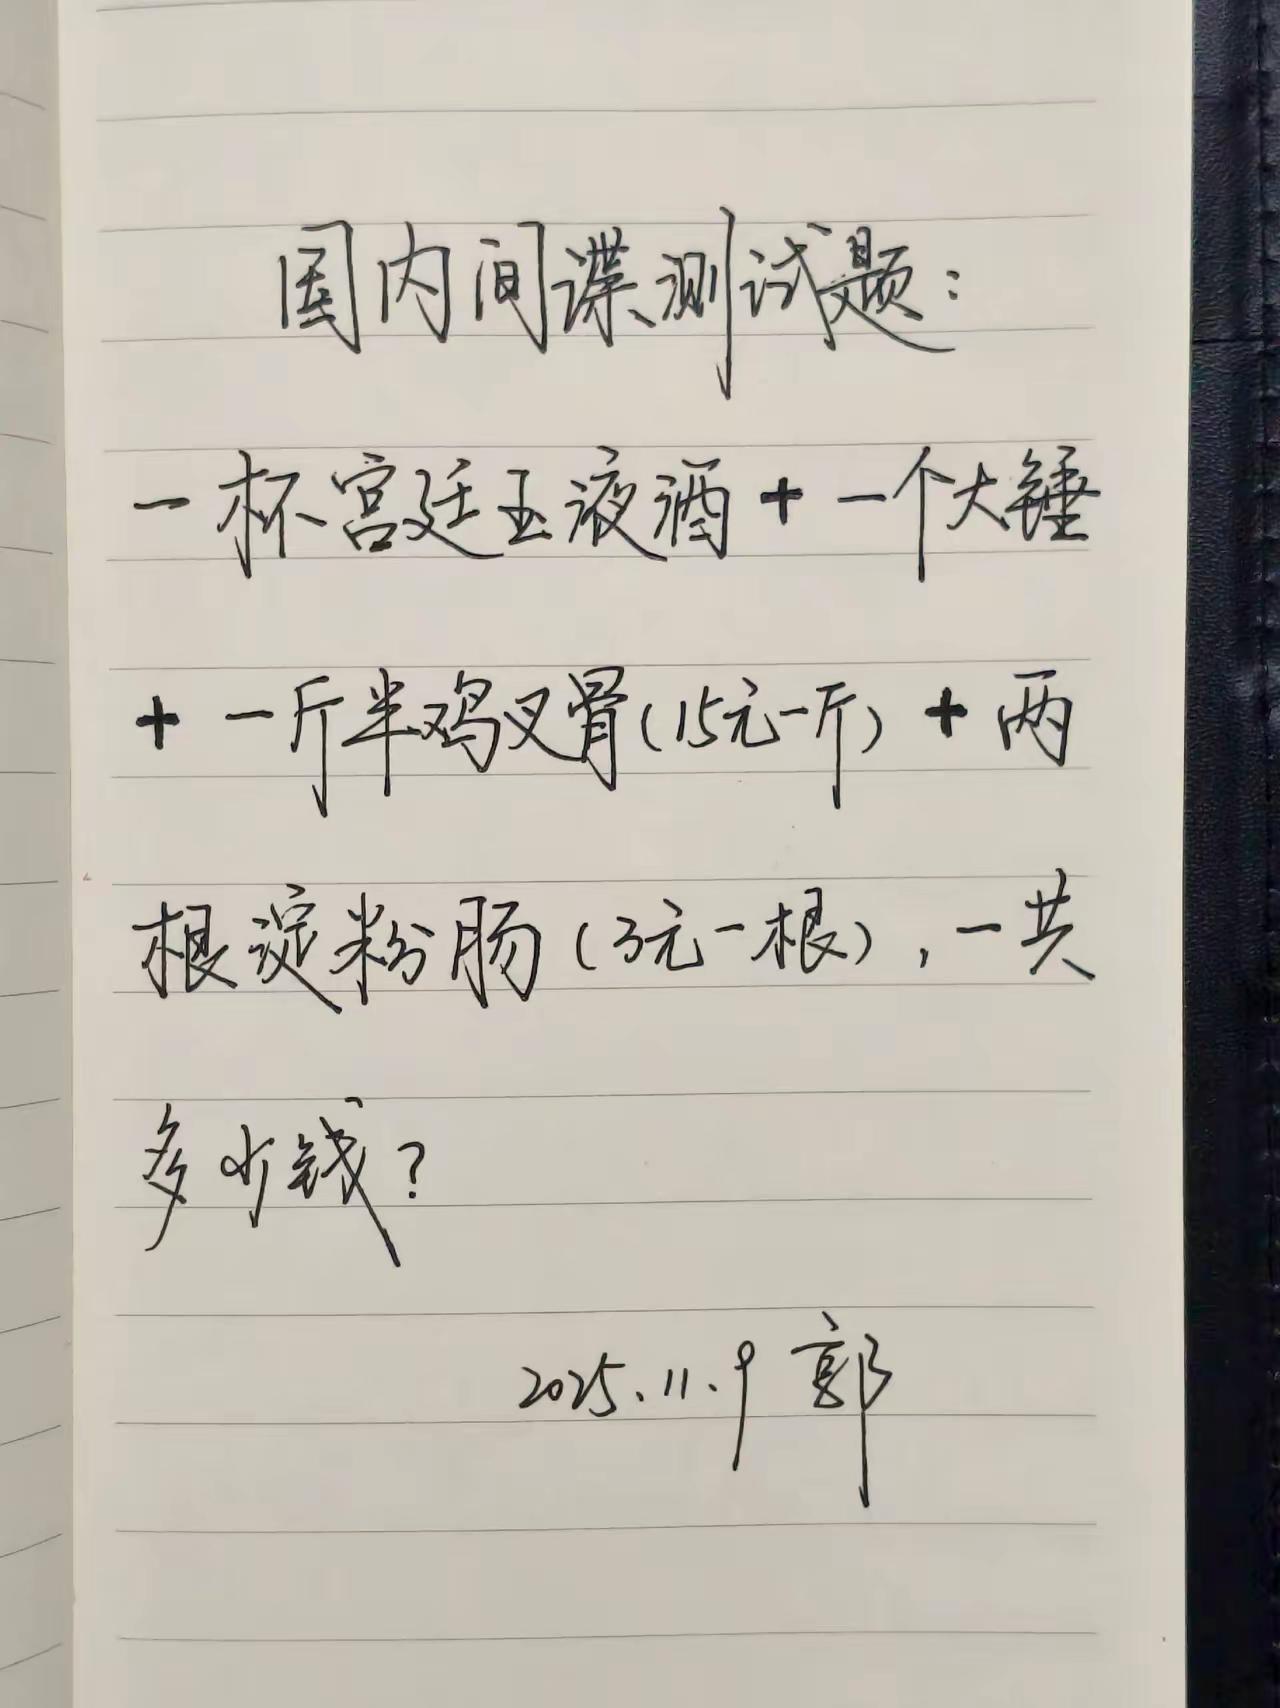 国内间谍测试题：
一杯宫廷玉液酒+一个大锤
+一斤半鸡叉骨(15元一斤)+两
根淀粉肠(3元一根)，一共
多少钱？
2025.11.9 郭